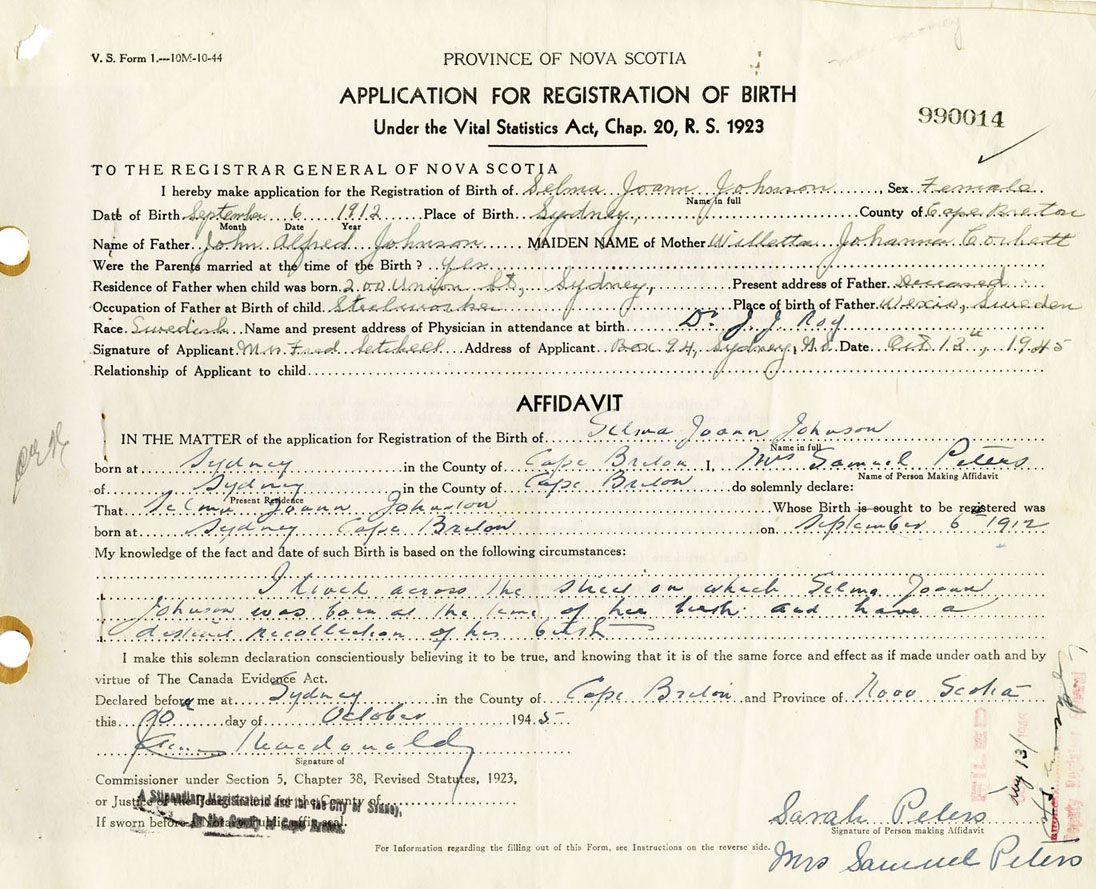 V. S. Form 1.---10M-10-44
PROVINCE OF NOVA SCOTIA
APPLICATION FOR REGISTRATION OF BIRTH
Under the Vital Statistics Act, Chap. 20, R. S. 1923
990014
TO THE REGISTRAR GENERAL OF NOVA SCOTIA
I hereby make application for the Registration of Birth of Selma Joann Johnson, Sex Female
Name in full
Date of Birth September 6 1912 Place of Birth Sydney, County of Cape Breton
Month Date Year
Name of Father John Alfred Johnson MAIDEN NAME of Mother Willetta Johanna Corbett
Were the Parents married at the time of the Birth? Yes
Residence of Father when child was born 200 Union St, Sydney, Present address of Father Deceased
Occupation of Father at Birth of child Steelworker Place of birth of Father Wexio, Sweden
Race Swedish Name and present address of Physician in attendance at birth Dr J. J. Roy
Signature of Applicant Mrs Fred Address of Applicant Box 94, Sydney, N.S. Date Oct 13th, 1945
Relationship of Applicant to child
AFFIDAVIT
IN THE MATTER of the application for Registration of the Birth of Selma Joann Johnson
Name in full
born at Sydney in the County of Cape Breton I, Mrs Samuel Peters
Name of Person Making Affidavit
of Sydney in the County of Cape Breton do solemnly declare:
Present Residence
That Selma Joann Johnson Whose Birth is sought to be registered was
born at Sydney Cape Breton on September 6th 1912
My knowledge of the fact and date of such Birth is based on the following circumstances:
I lived across the street on which Selma Joann
Johnson was born at the time of her birth and have a
distinct recollection of her birth
I make this solemn declaration conscientiously believing it to be true, and knowing that it is of the same force and effect as if made under oath and by
virtue of The Canada Evidence Act.
Declared before me at Sydney in the County of Cape Breton and Province of Nova Scotia
this 20 day of October 1945
Macdonald
Signature of
Commissioner under Section 5, Chapter 38, Revised Statutes, 1923,
or Justice of the Peace in and for the County of
A Stipendiary Magistrate in and for the City of Sydney,
In the County of Cape Breton.
If sworn before a Notary Public affix seal.
FILED
Sarah Peters
Signature of Person making Affidavit
Mrs Samuel Peters
For Information regarding the filling out of this Form, see Instructions on the reverse side.